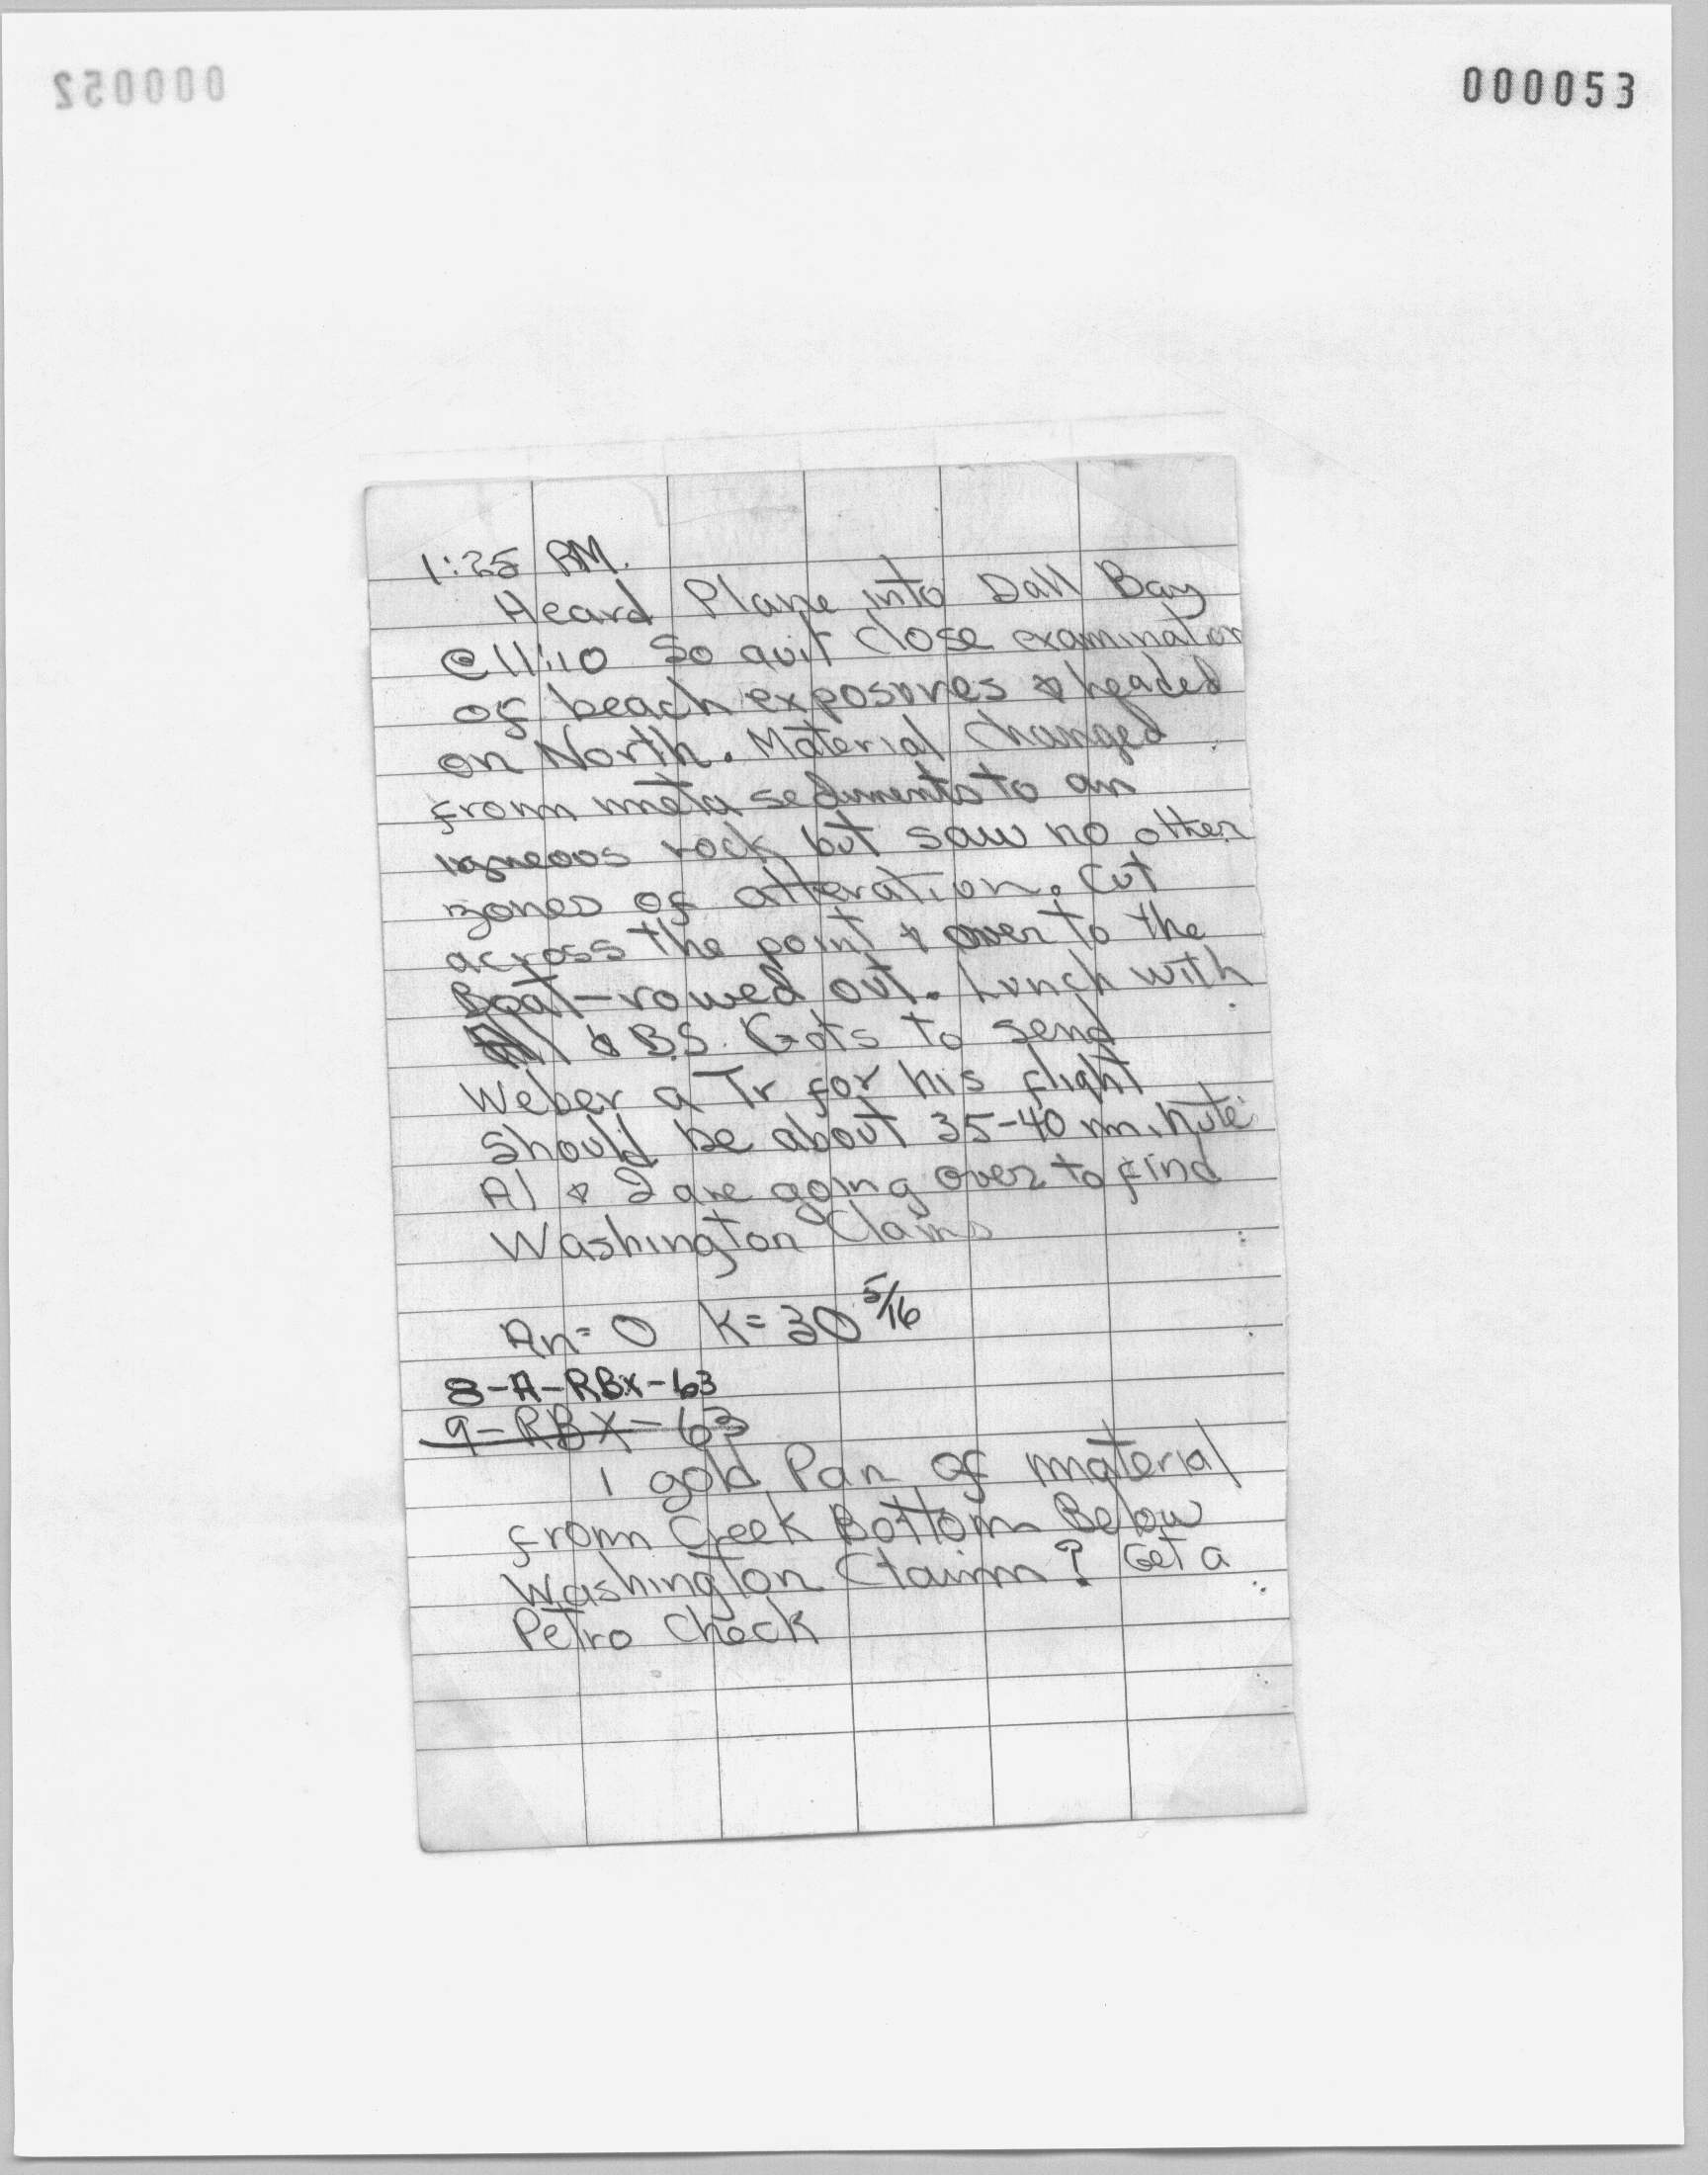 000052
000053
1:25 PM.
Heard Plane into Dall Bay
@ 11:10 So quit close examination
of beach exposures & headed
on North. Material changed
from meta sediments to an
igneous rock but saw no other
zones of alteration. Cut
across the point & over to the
Boat - rowed out. Lunch with
Al & B.S. Gots to send
Weber a Tr for his flight
Should be about 35-40 minute
Al & I are going over to find
Washington Claims
An = 0 K = 30 5/16
8-A-RBX-63
9-RBX-63
1 gold Pan of material
from Creek Bottom Below
Washington Claim? Get a
Petro Check